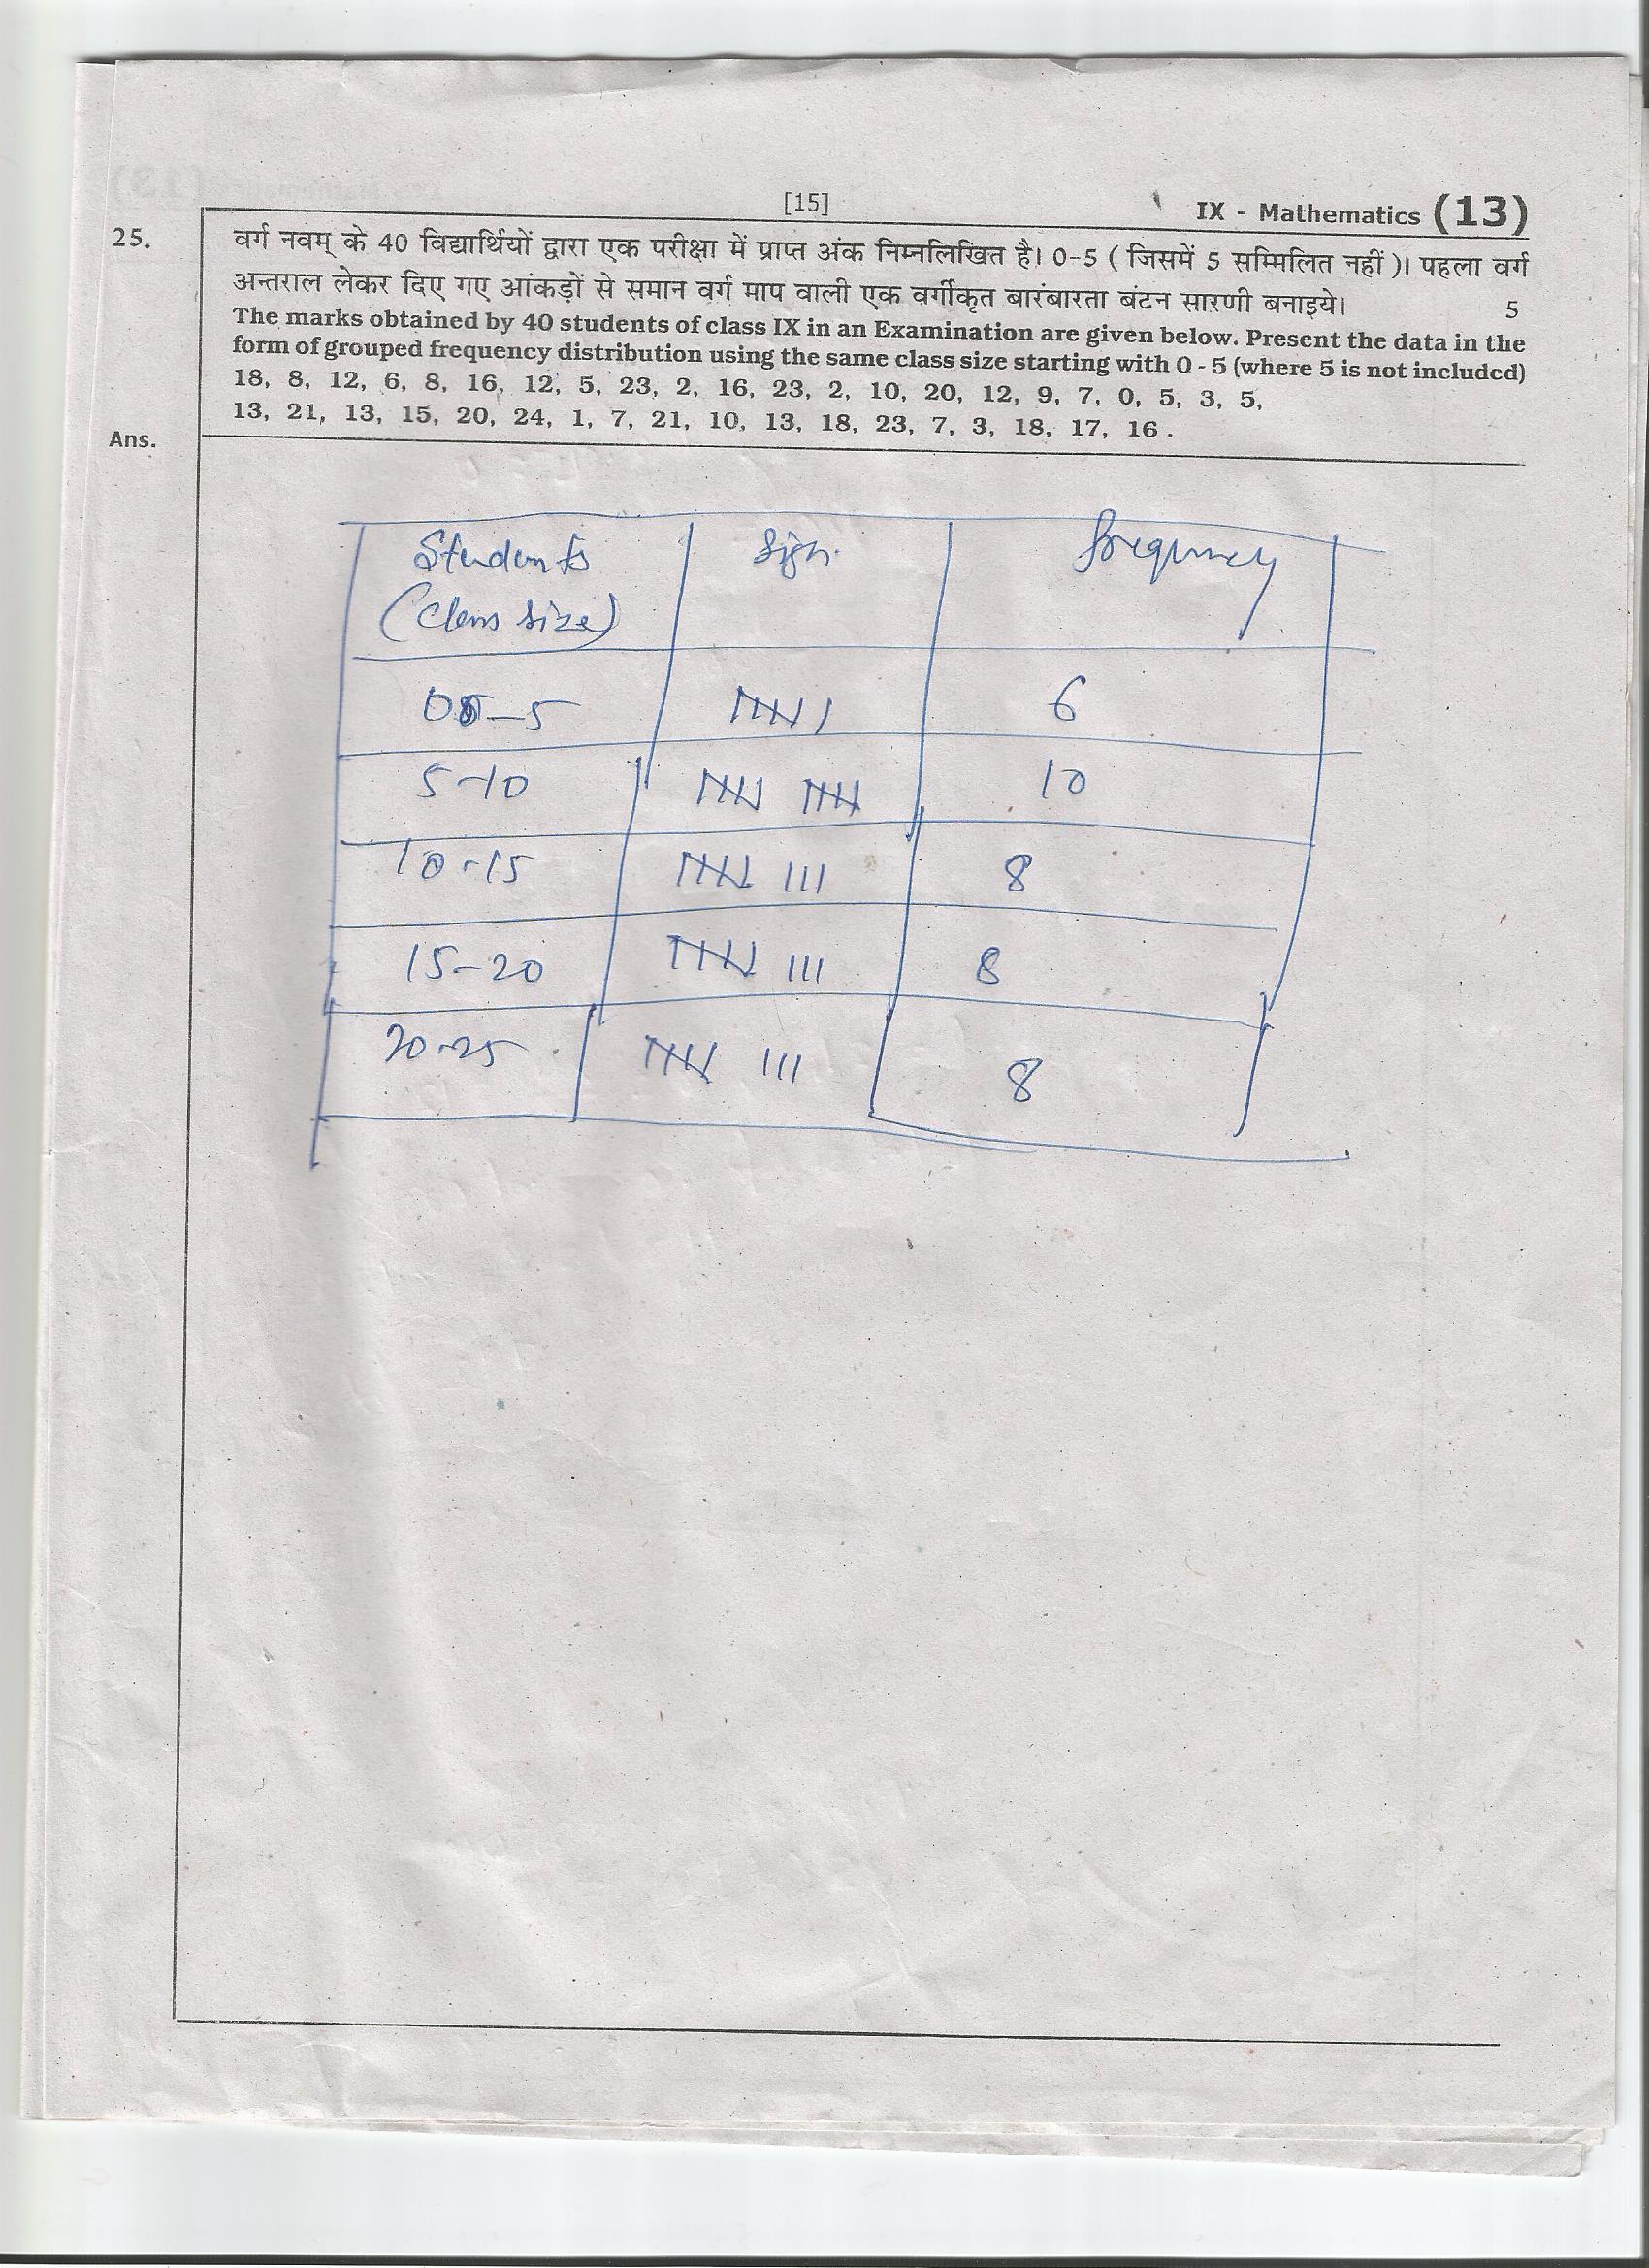 [15]
IX - Mathematics (13)
25. वर्ग नवम् के 40 विद्यार्थियों द्वारा एक परीक्षा में प्राप्त अंक निम्नलिखित है। 0-5 ( जिसमें 5 सम्मिलित नहीं )। पहला वर्ग
अन्तराल लेकर दिए गए आंकड़ों से समान वर्ग माप वाली एक वर्गीकृत बारंबारता बंटन सारणी बनाइये। 5
The marks obtained by 40 students of class IX in an Examination are given below. Present the data in the
form of grouped frequency distribution using the same class size starting with 0 - 5 (where 5 is not included)
18, 8, 12, 6, 8, 16, 12, 5, 23, 2, 16, 23, 2, 10, 20, 12, 9, 7, 0, 5, 3, 5,
13, 21, 13, 15, 20, 24, 1, 7, 21, 10, 13, 18, 23, 7, 3, 18, 17, 16 .
Ans.
Students Sign. frequency
(Class size)
0-5 6
5-10 10
10-15 8
15-20 8
20-25 8